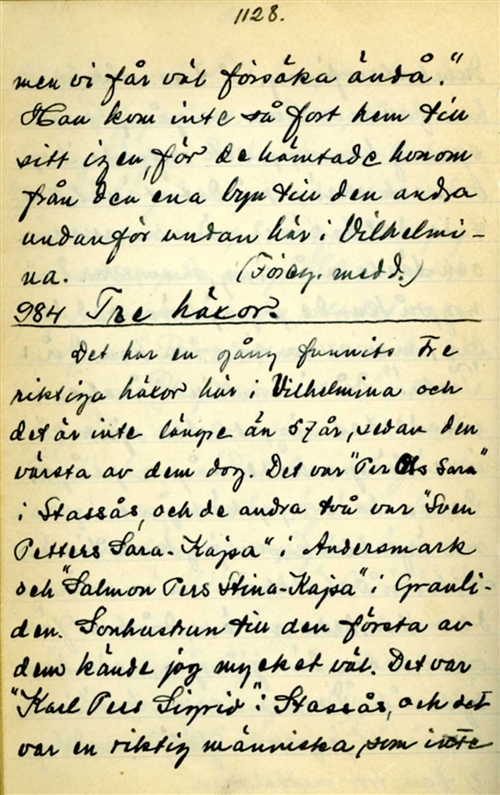 1128.
men vi får väl försöka ändå."
Han kom inte så fort hem till
sitt igen, för de hämtade honom
från den ena byn till den andra
undanför undan här i Vilhelmi-
na. (Föreg. medd.)
984 Tre häxor.
Det har en gång funnits tre
riktiga häxor här i Vilhelmina och
det är inte längre än 57 år, sedan den
värsta av dem dog. Det var "Per Ols Sara"
i Stassås, och de andra två var "Sven
Petters Sara-Kajsa" i Andersmark
och "Salmon Pers Stina-Kajsa" i Granli-
den. Sonhustrun till den första av
dem kände jag mycket väl. Det var
"Karl Pers Sigrid" i Stassås, och det
var en riktig människa, som inte